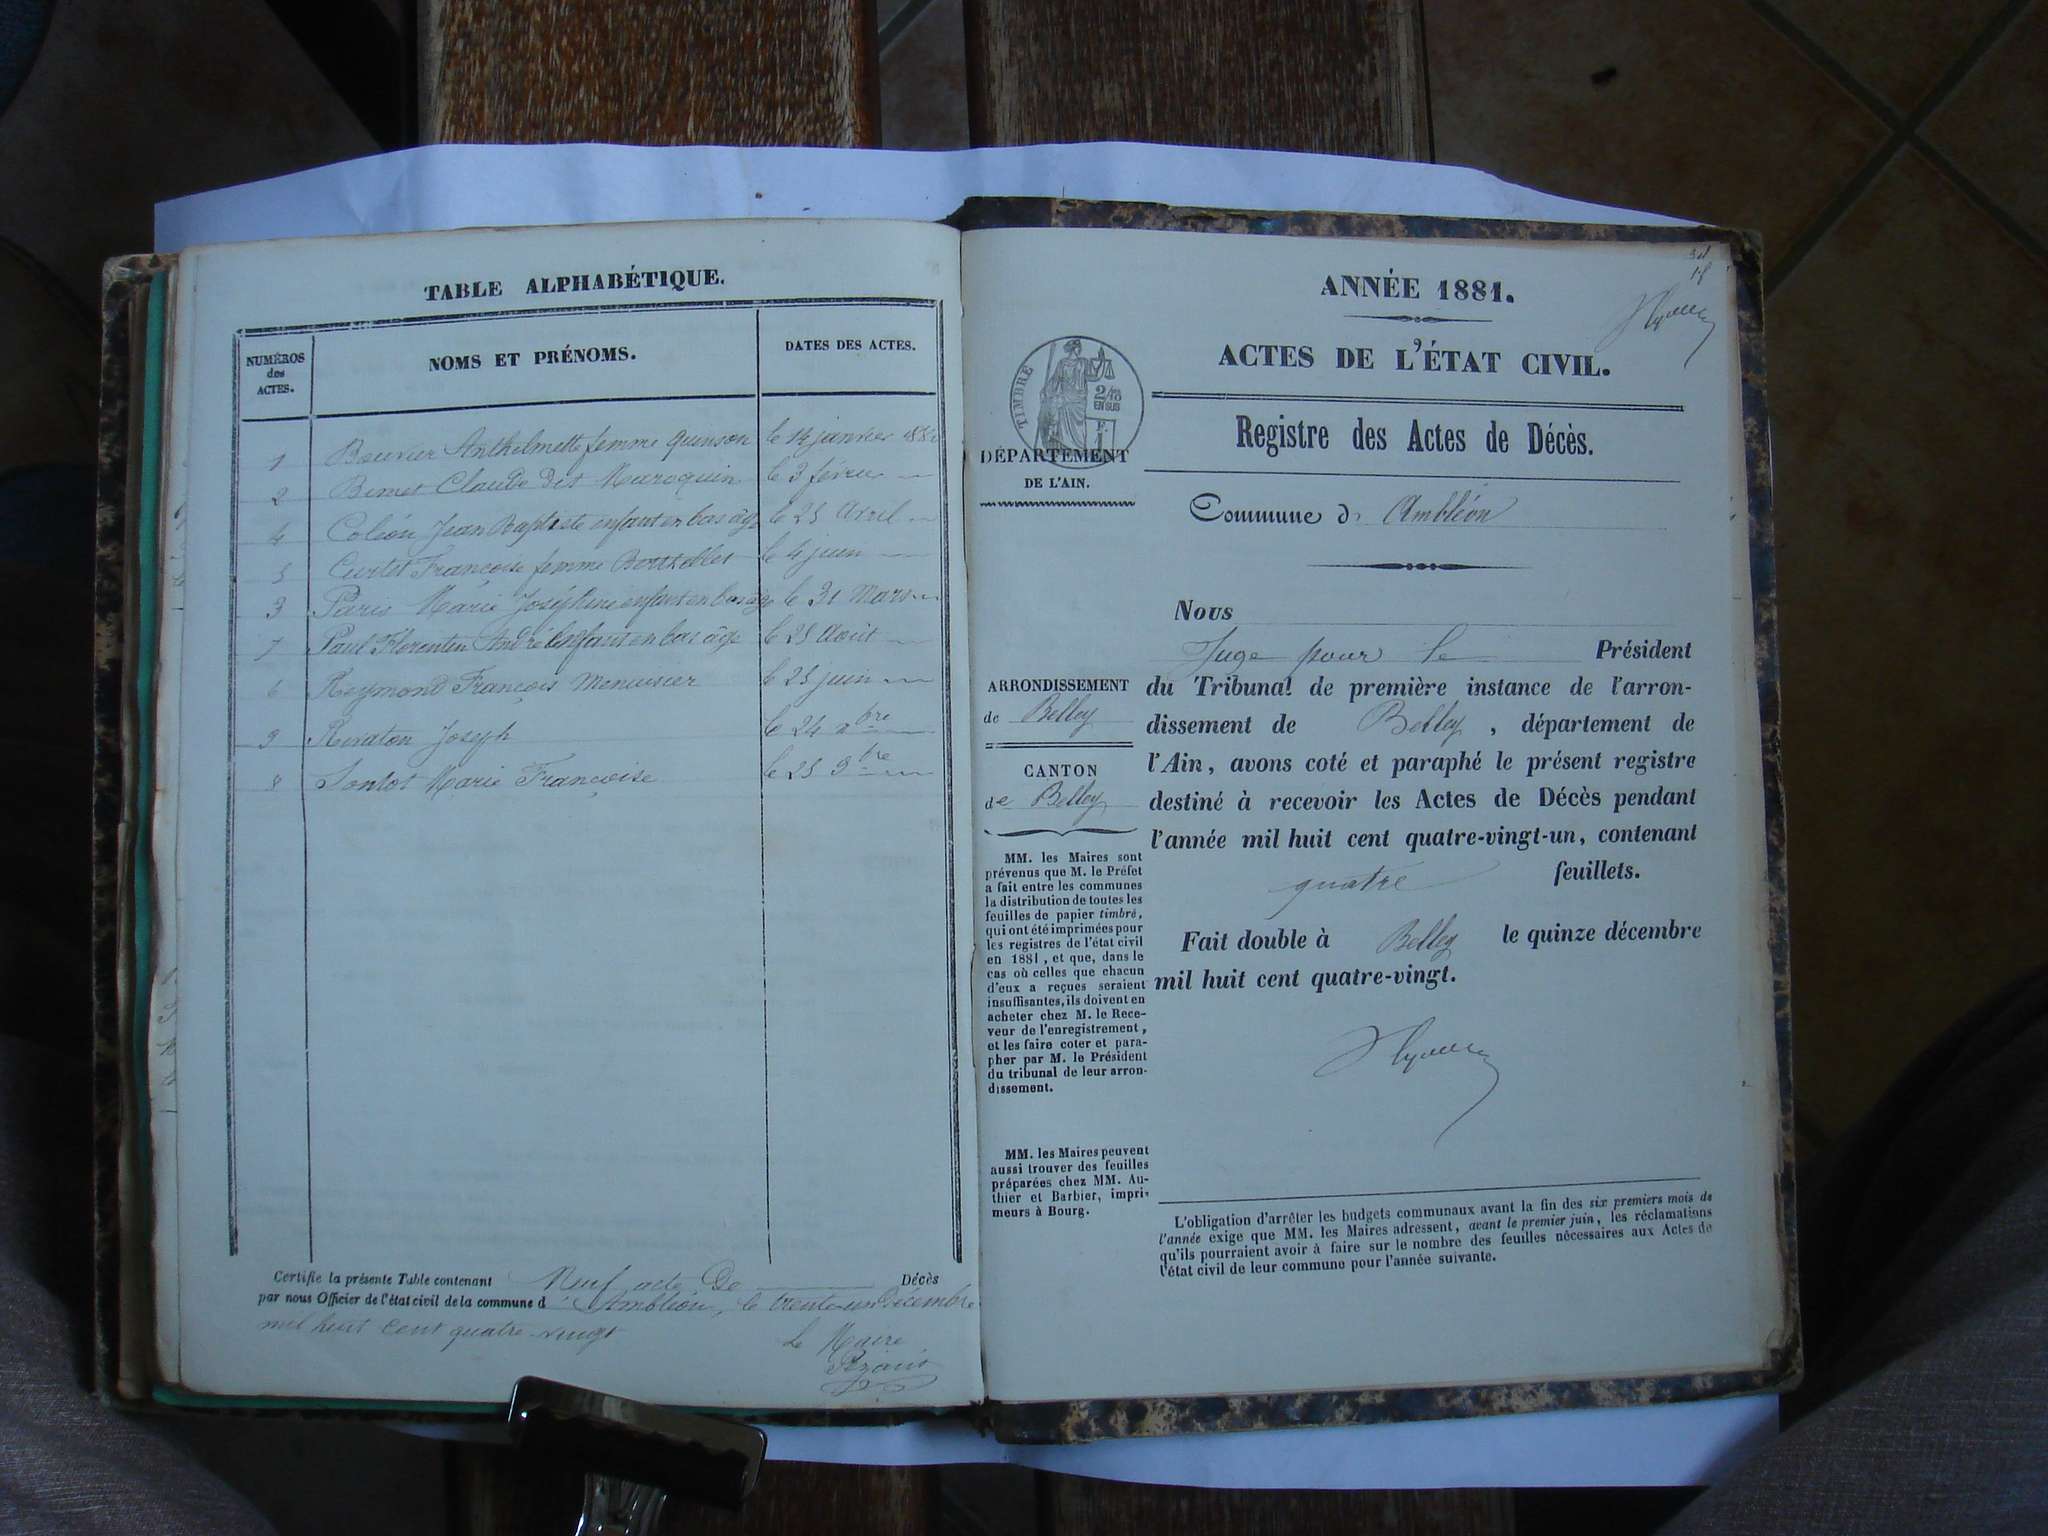 TABLE ALPHABÉTIQUE.
NUMÉROS des ACTES. NOMS ET PRÉNOMS. DATES DES ACTES.
1 Bouvier Anthelmette femme Quinson le 14 janvier 1880
2 Bimet Claude dit Maroquin le 3 février
4 Coléon Jean Baptiste enfant en bas âge le 25 Avril
5 Curtet Françoise femme le 4 juin
3 Paris Marie Joséphine enfant en bas âge le 31 Mars
7 Paul Florentin André enfant en bas âge le 25 Août
6 Reymond François Menuisier le 25 juin
9 Joseph le 24 xbre
8 Marie Françoise le 25 9bre
Certifie la présente Table contenant Neuf acte De Décès
par nous Officier de l'état civil de la commune d'Ambléon, le trente-un Décembre
mil huit cent quatre-vingt
Le Maire
ANNÉE 1881.
ACTES DE L'ÉTAT CIVIL.
Registre des Actes de Décès.
TIMBRE
2/10
EN SUS
F.
1
DÉPARTEMENT
DE L'AIN.
Commune d' Ambléon
Nous
Juge pour le Président
du Tribunal de première instance de l'arron-
dissement de Belley, département de
l'Ain, avons coté et paraphé le présent registre
destiné à recevoir les Actes de Décès pendant
l'année mil huit cent quatre-vingt-un, contenant
quatre feuillets.
Fait double à Belley le quinze décembre
mil huit cent quatre-vingt.
ARRONDISSEMENT
de Belley
CANTON
de Belley
MM. les Maires sont
prévenus que M. le Préfet
a fait entre les communes
la distribution de toutes les
feuilles de papier timbré,
qui ont été imprimées pour
les registres de l'état civil
en 1881, et que, dans le
cas où celles que chacun
d'eux a reçues seraient
insuffisantes, ils doivent en
acheter chez M. le Rece-
veur de l'enregistrement,
et les faire coter et para-
pher par M. le Président
du tribunal de leur arron-
dissement.
MM. les Maires peuvent
aussi trouver des feuilles
préparées chez MM. Au-
thier et Barbier, impri-
meurs à Bourg.
L'obligation d'arrêter les budgets communaux avant la fin des six premiers mois de
l'année exige que MM. les Maires adressent, avant le premier juin, les réclamations
qu'ils pourraient avoir à faire sur le nombre des feuilles nécessaires aux Actes de
l'état civil de leur commune pour l'année suivante.